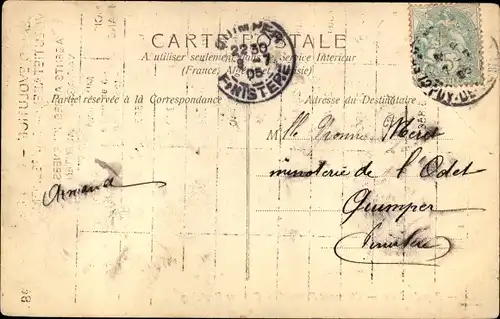 CARTE POSTALE
A utiliser seulement Service Intérieur
(France, Algérie Tunisie)
QUIMPER
22 30
-7
05
FINISTERE
PUY-DE-
Partie réservée à la Correspondance
Adresse du Destinataire
Mlle Yvonne
minoterie de l'Odet
Quimper
Finistère
Armand